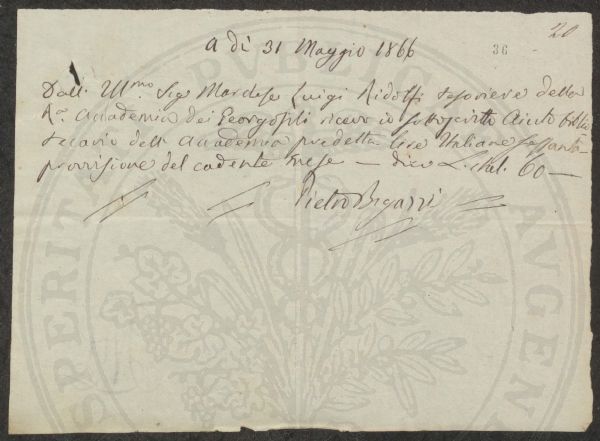 20
36
A dì 31 Maggio 1866
Dall. Ill.mo Sig. Marchese Luigi Ridolfi Tesoriere della
R.a Accademia dei Georgofili ricevo io sottoscritto Aiuto biblio
tecario dell' Accademia predetta lire Italiane sessanta
provvisione del cadente mese — dico L. ital. 60 —
Pietro Bigazzi
PROSPERITATI PUBLICAE AUGENDAE